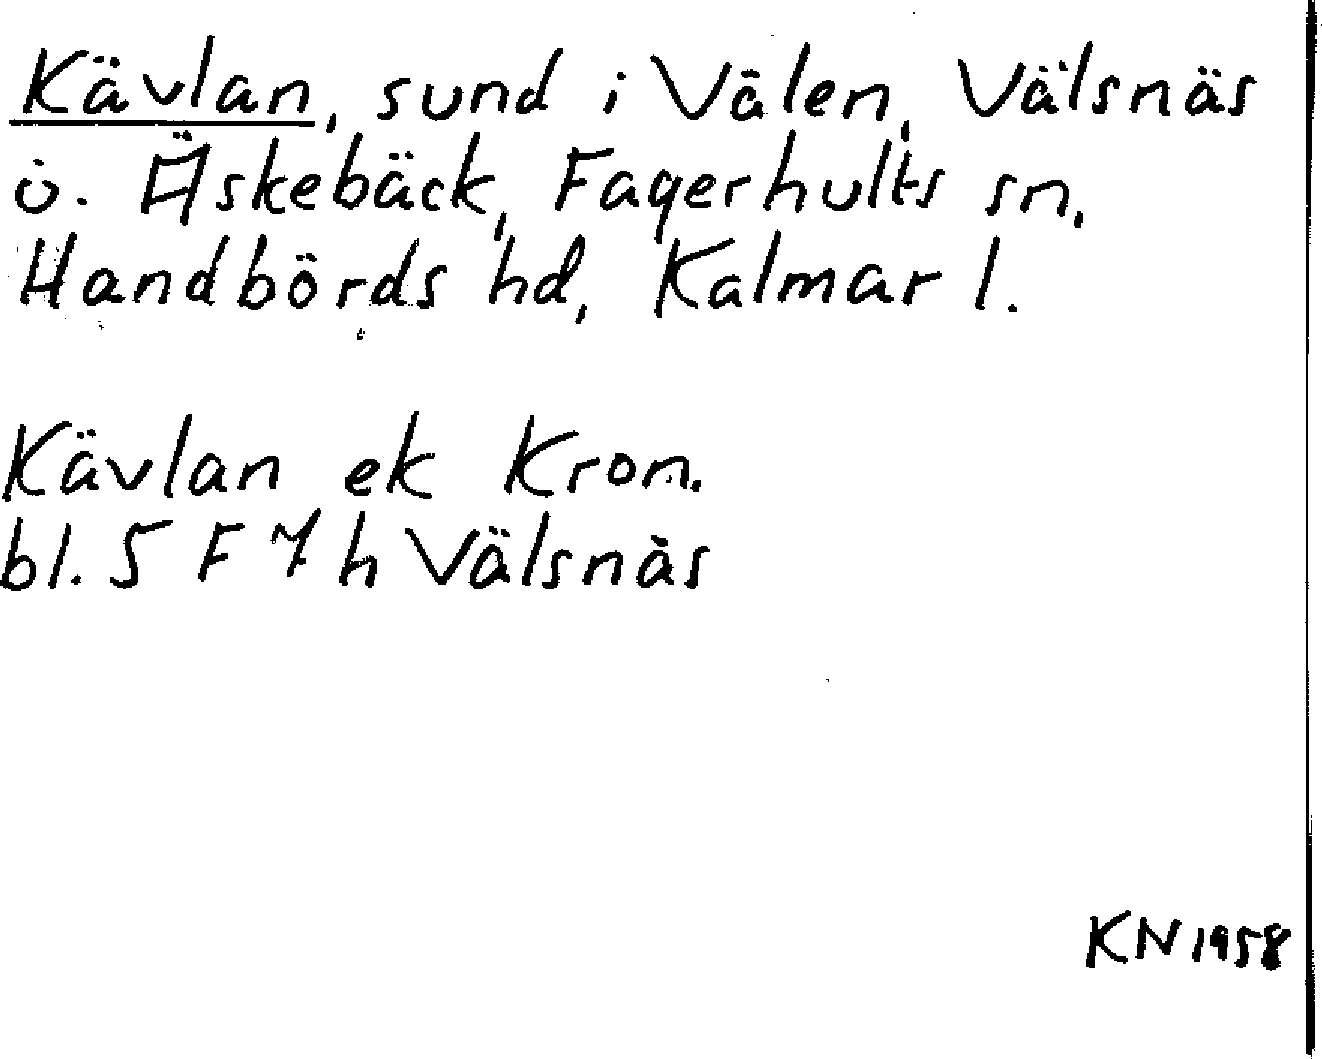 Kävlan, sund i Välen, Välsnäs
o. Äskebäck, Fagerhults sn,
Handbörds hd, Kalmar l.
Kävlan ek Kron.
bl. 5 F 7 h Välsnäs
KN 1958